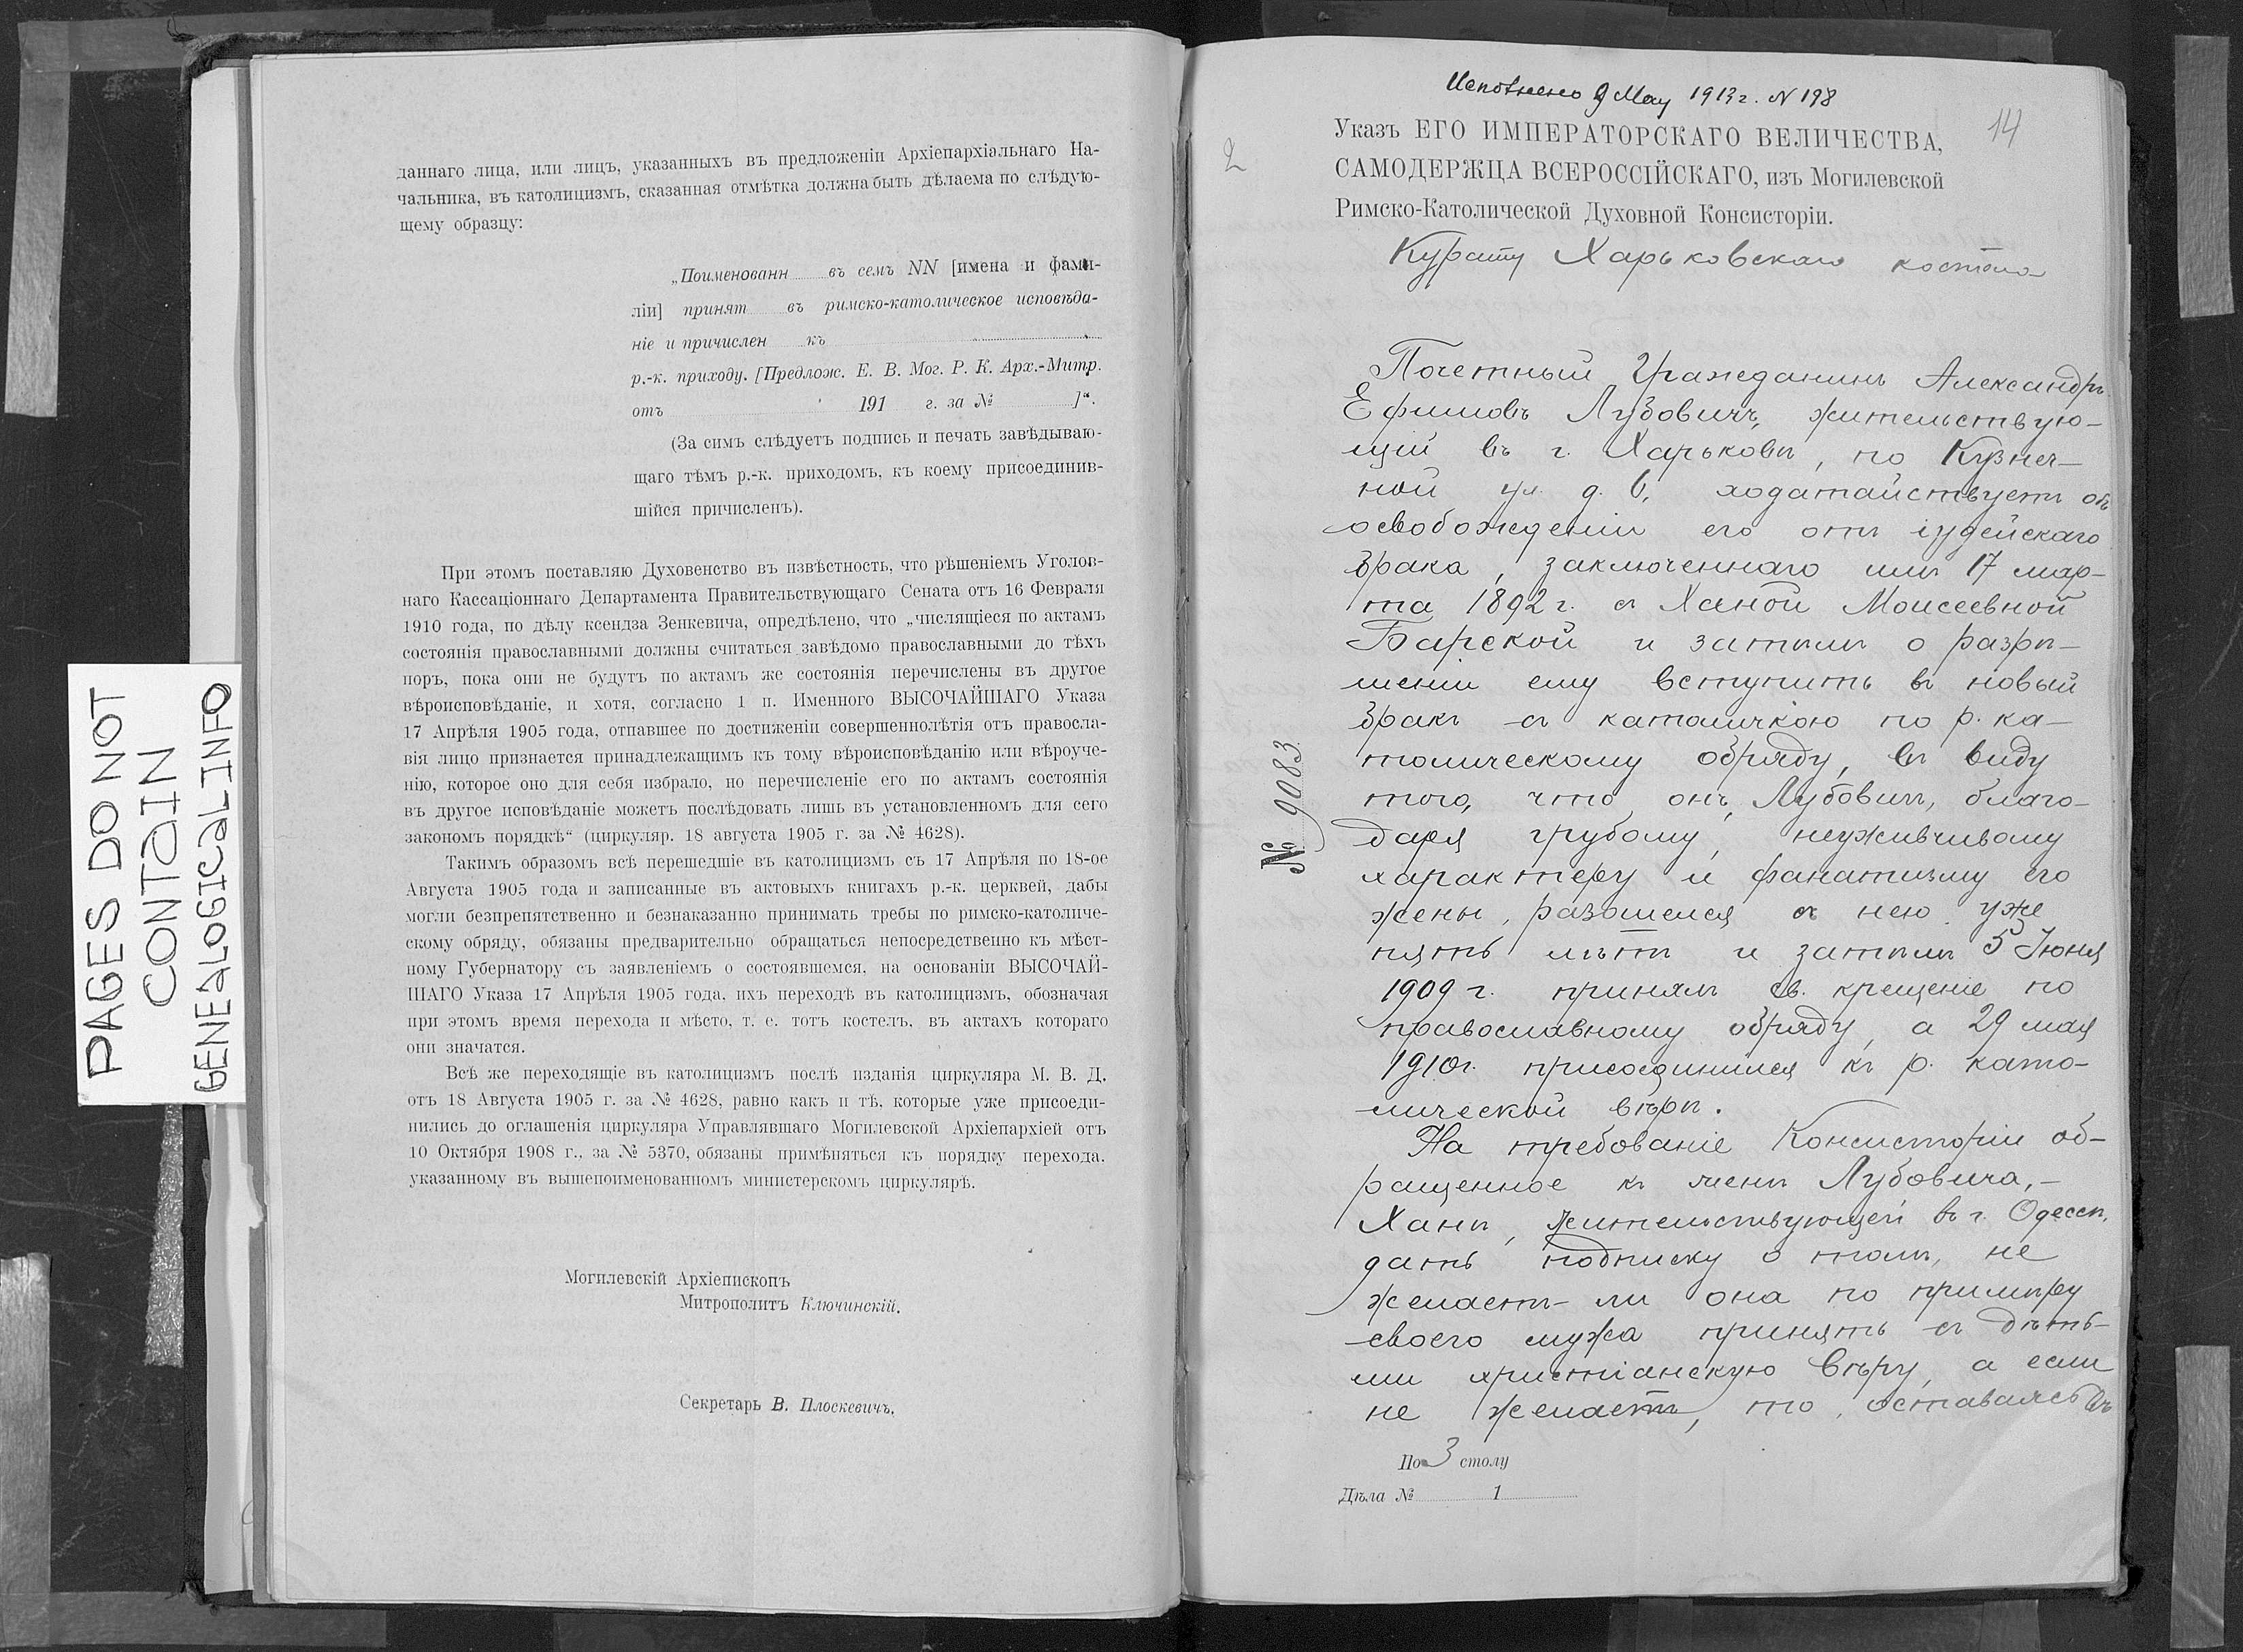 PAGES DO NOT
CONTAIN
GENEALOGICAL INFO
даннаго лица, или лицъ, указанныхъ въ предложеніи Архіепархіальнаго На-
чальника, въ католицизмъ, сказанная отмѣтка должна быть дѣлаема по слѣдую-
щему образцу:
„Поименованн въ семъ NN [имена и фами-
ліи] принят въ римско-католическое исповѣда-
ніе и причислен къ
р.-к. приходу. [Предлож. Е. В. Мог. Р. К. Арх.-Митр.
отъ 191 г. за № ]“.
(За симъ слѣдуетъ подпись и печать завѣдываю-
щаго тѣмъ р.-к. приходомъ, къ коему присоединив-
шійся причисленъ).
При этомъ поставляю Духовенство въ извѣстность, что рѣшеніемъ Уголов-
наго Кассаціоннаго Департамента Правительствующаго Сената отъ 16 Февраля
1910 года, по дѣлу ксендза Зенкевича, опредѣлено, что „числящіеся по актамъ
состоянія православными должны считаться завѣдомо православными до тѣхъ
поръ, пока они не будутъ по актамъ же состоянія перечислены въ другое
вѣроисповѣданіе, и хотя, согласно 1 п. Именного ВЫСОЧАЙШАГО Указа
17 Апрѣля 1905 года, отпавшее по достиженіи совершеннолѣтія отъ правосла-
вія лицо признается принадлежащимъ къ тому вѣроисповѣданію или вѣроуче-
нію, которое оно для себя избрало, но перечисленіе его по актамъ состоянія
въ другое исповѣданіе можетъ послѣдовать лишь въ установленномъ для сего
закономъ порядкѣ“ (циркуляр. 18 августа 1905 г. за № 4628).
Такимъ образомъ всѣ перешедшіе въ католицизмъ съ 17 Апрѣля по 18-ое
Августа 1905 года и записанные въ актовыхъ книгахъ р.-к. церквей, дабы
могли безпрепятственно и безнаказанно принимать требы по римско-католиче-
скому обряду, обязаны предварительно обращаться непосредственно къ мѣст-
ному Губернатору съ заявленіемъ о состоявшемся, на основаніи ВЫСОЧАЙ-
ШАГО Указа 17 Апрѣля 1905 года, ихъ переходѣ въ католицизмъ, обозначая
при этомъ время перехода и мѣсто, т. е. тотъ костелъ, въ актахъ котораго
они значатся.
Всѣ же переходящіе въ католицизмъ послѣ изданія циркуляра М. В. Д.
отъ 18 Августа 1905 г. за № 4628, равно какъ и тѣ, которые уже присоеди-
нились до оглашенія циркуляра Управлявшаго Могилевской Архіепархіей отъ
10 Октября 1908 г., за № 5370, обязаны примѣняться къ порядку перехода.
указанному въ вышепоименованномъ министерскомъ циркулярѣ.
Могилевскій Архіепископъ
Митрополитъ Ключинскій.
Секретарь В. Плоскевичъ.
Исполнено 9 Мау 1913 г. N 198
2
14
Указъ ЕГО ИМПЕРАТОРСКАГО ВЕЛИЧЕСТВА,
САМОДЕРЖЦА ВСЕРОССІЙСКАГО, изъ Могилевской
Римско-Католической Духовной Консисторіи.
Курату Харьковскаго костела
№ 9083.
Почетный Гражданинъ Александръ
Ефимовъ Лубовичъ, жительствую-
щій въ г. Харьковѣ, по Кузнеч-
ной ул. д. 6, ходатайствуетъ объ
освобожденіи его отъ іудейскаго
брака, заключеннаго имъ 17 мар-
та 1892 г. съ Ханой Моисеевной
Барской и затѣмъ о разрѣ-
шеніи ему вступить въ новый
бракъ съ католичкою по р. ка-
толическому обряду, въ виду
того, что онъ, Лубовичъ, благо-
даря грубому, неуживчивому
характеру и фанатизму его
жены, разошелся съ нею уже
пять лѣтъ и затѣмъ 5 Іюня
1909 г. принялъ св. крещеніе по
православному обряду, а 29 мая
1910 г. присоединился къ р. като-
лической вѣрѣ.
На требованіе Консисторіи об-
ращенное къ женѣ Лубовича,-
Ханѣ, жительствующей въ г. Одессѣ,
дать подписку о томъ, не
желаетъ-ли она по примѣру
своего мужа принять съ дѣть-
ми христіанскую вѣру, а если
не желаетъ, то, оставаясь въ
По 3 столу
Дѣла № 1